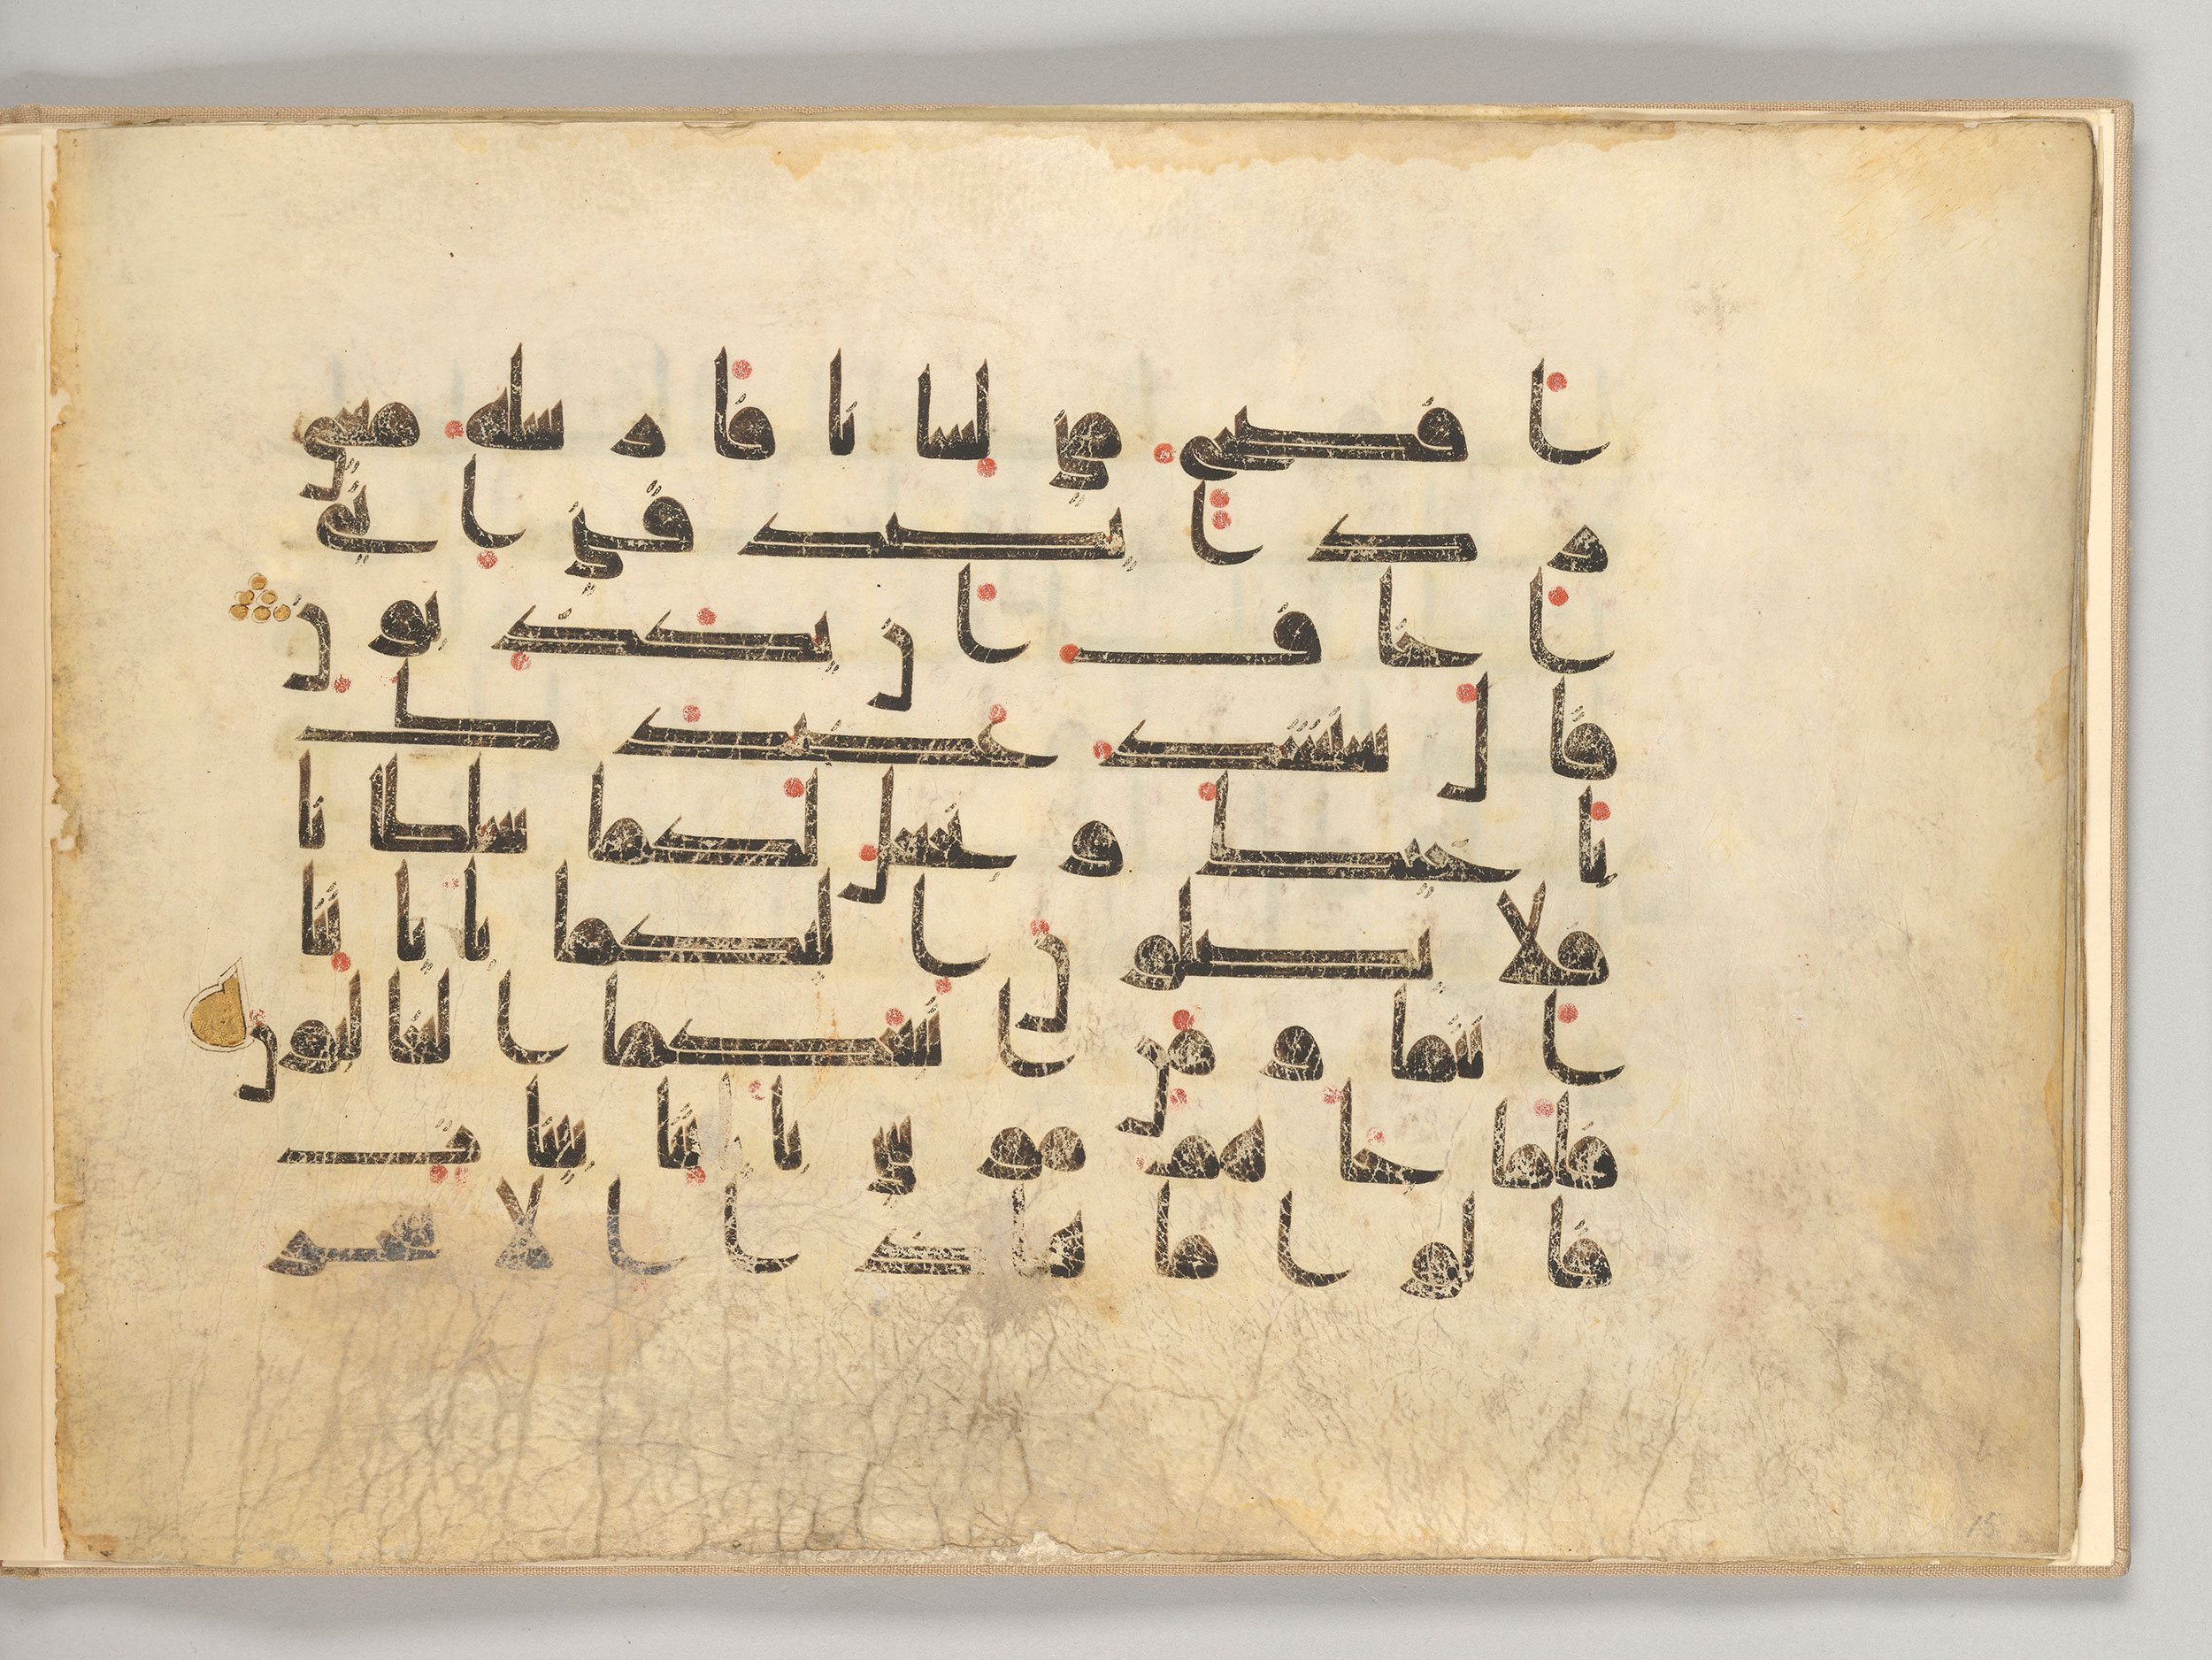 أفصح مني لسانا فأرسله معي
ردا يصدقني إني
أخاف أن يكذبون
قال سنشد عضدك
بأخيك ونجعل لكما سلطانا
فلا يصلون إليكما باياتنا
أنتما ومن اتبعكما الغالبون
فلما جاهم موسى بايتنا بينات
قالوا ما هذا إلا سحر